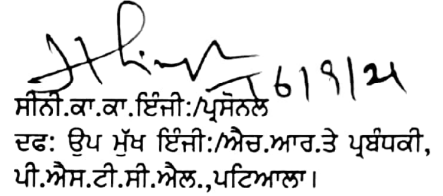 16/9/21
ਸੀਨੀ.ਕਾ.ਕਾ.ਇੰਜੀ:/ਪ੍ਰਸੋਨਲ
ਦਫ: ਉਪ ਮੁੱਖ ਇੰਜੀ:/ਐਚ.ਆਰ.ਤੇ ਪ੍ਰਬੰਧਕੀ,
ਪੀ.ਐਸ.ਟੀ.ਸੀ.ਐਲ.,ਪਟਿਆਲਾ।